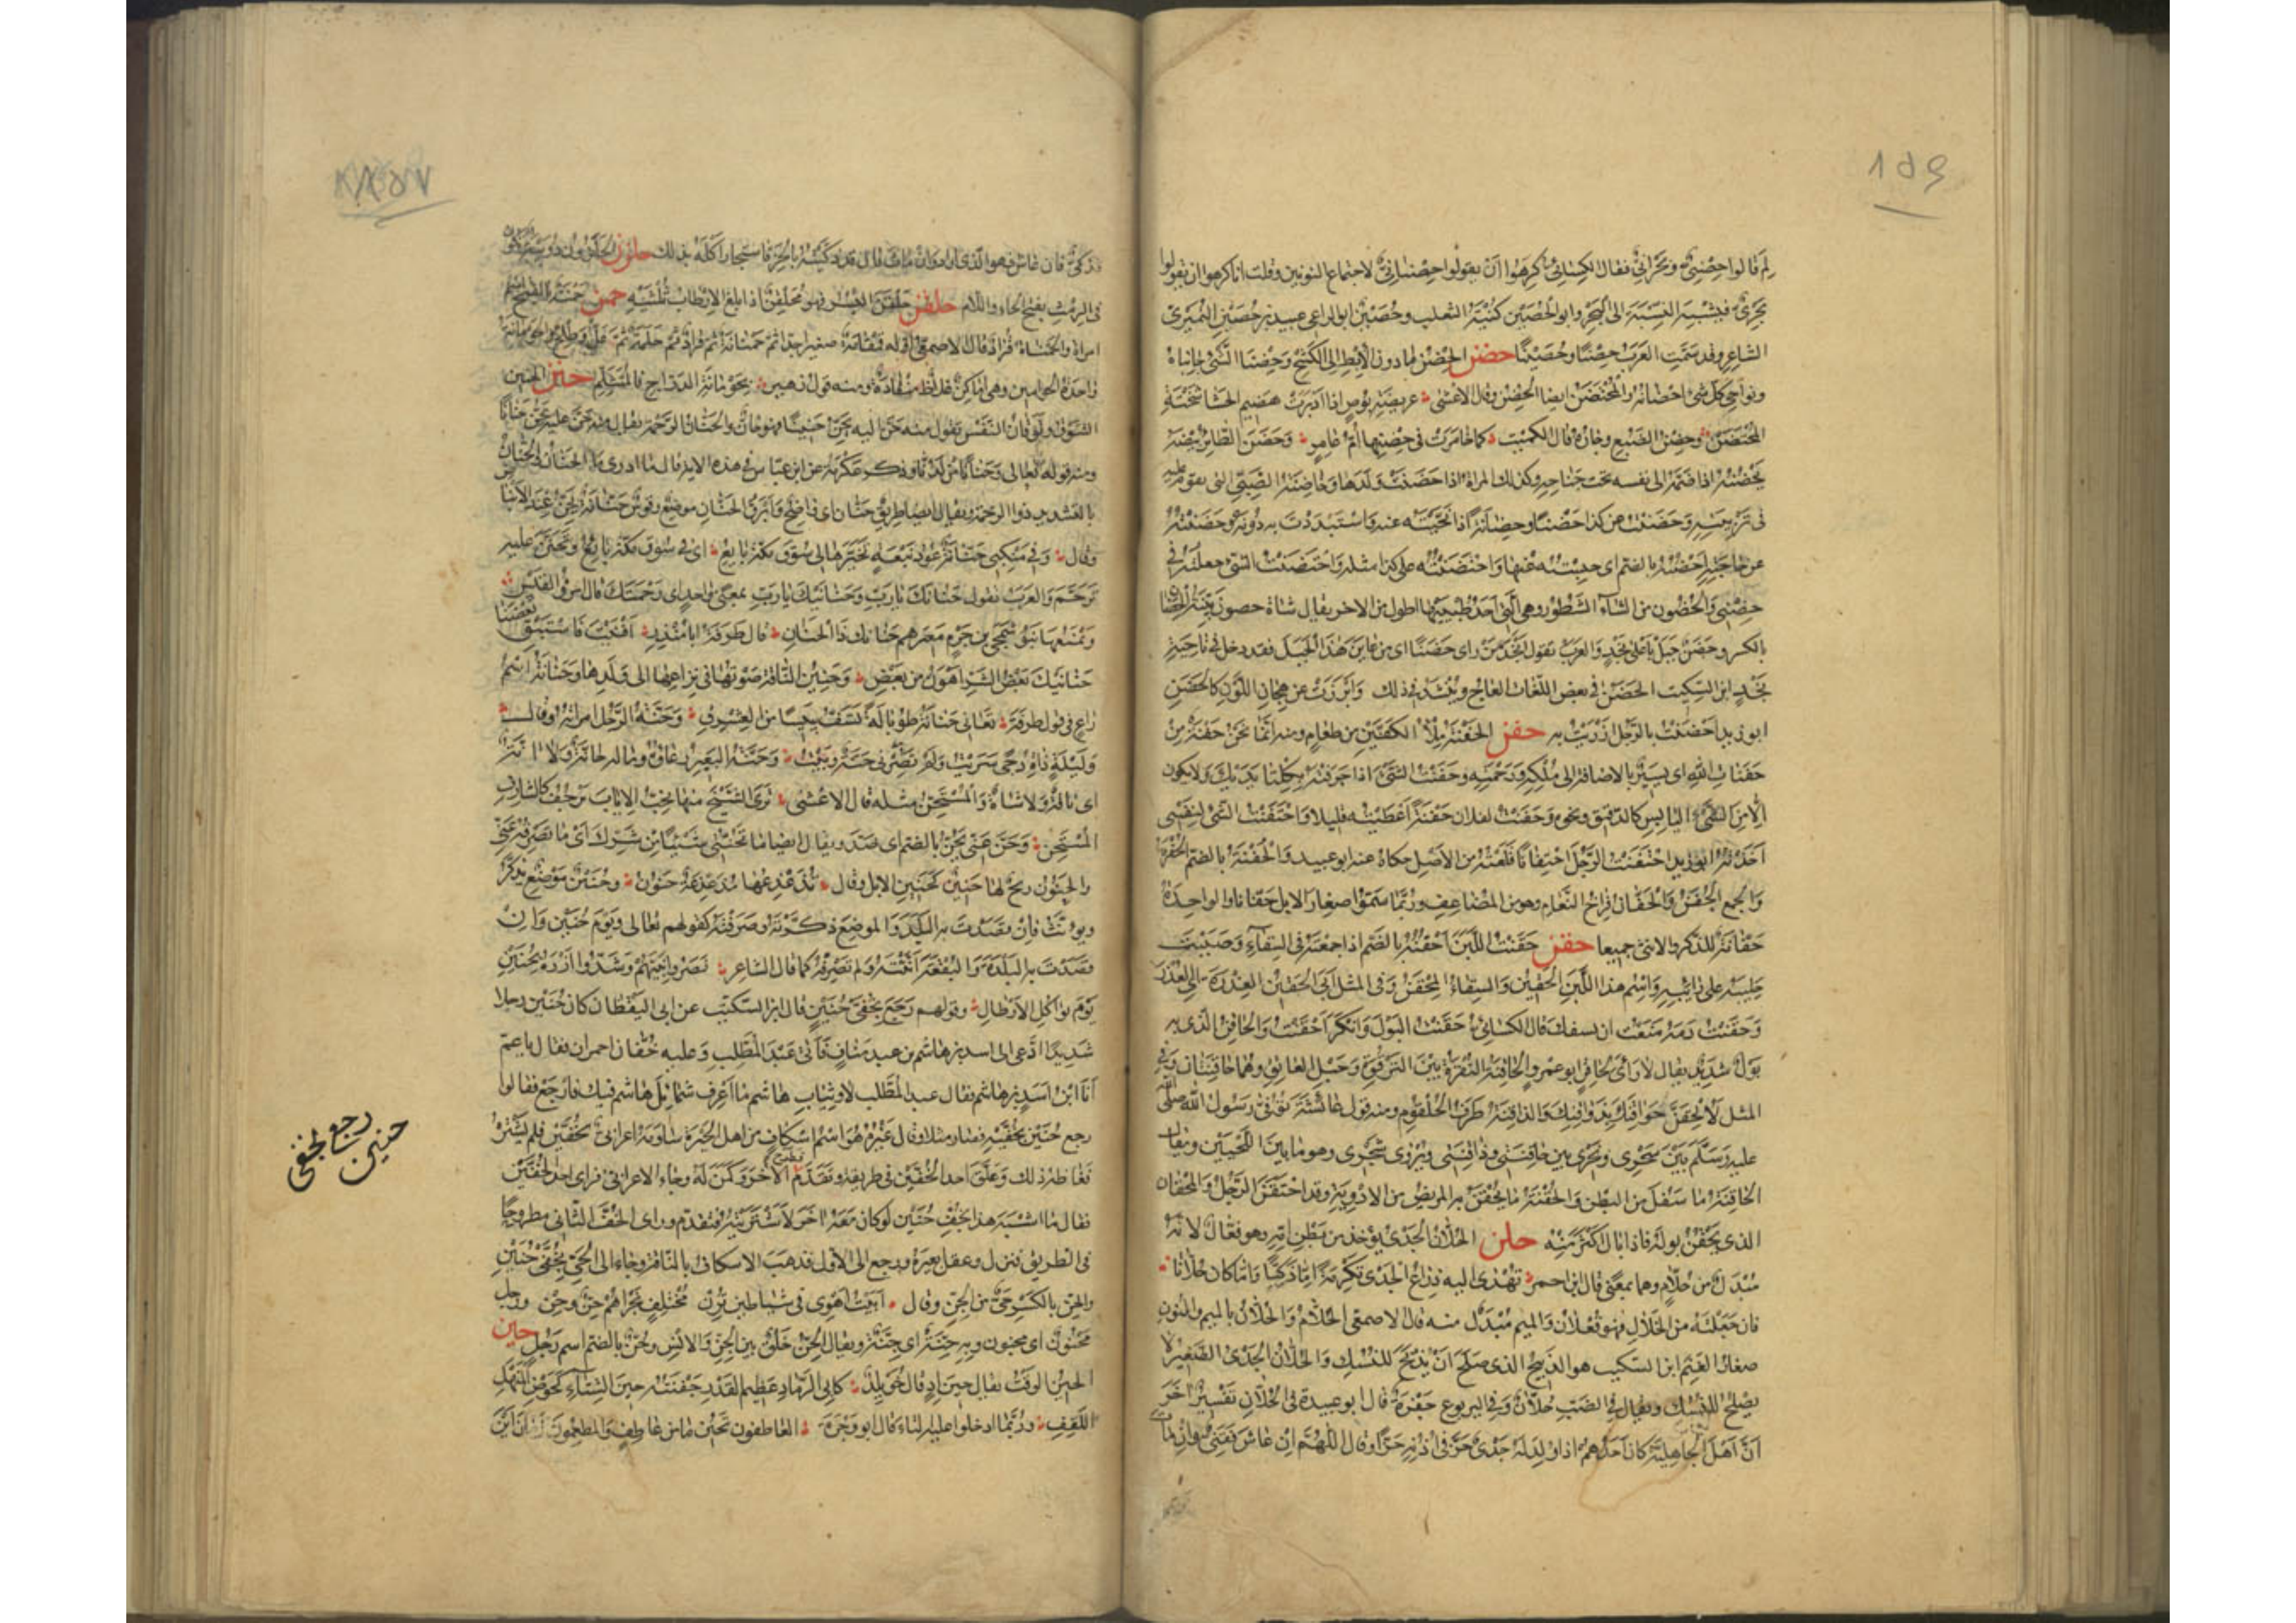 ١٥٩
لم قالوا حِصْنِيٌّ وبَحْرَانِيٌّ فقال الكسائى كَرِهُوا أنْ يقولوا حِصْنَانِيٌّ لاجتماع النونين وقلت انا كرهوا ان يقولوا
بَحْرِيٌّ فيشبه النِسْبَةَ الى الْبَحْرِ وابو الحُصَيْن كنية الثعلب وحُصَيْن ابو الراعى عبيد بن حُصَيْنٍ النُمَيْرِىّ
الشاعر وقد سَمَّتِ العرب حِصْنًا وحُصَيْنًا حضن الحِضْنُ ما دون الإبْطِ الى الكَشْحِ وحِضْنَا الشَّىْءِ جانباهُ
ونواحى كلّ شىْء احضانه والمُحْتَضَنُ ايضا الحِضْنُ وقال الاعشى عريضة بُوصٍ اذا ادبرت هضيم الحشا شَخْتَةِ
المُحْتَضَنْ وحِضْنُ الضَّبُعِ وِجَارُهُ قال الكميت كما خامرت فى حِضْنِها أمّ عامر وحَضَنَ الطائر بيضه
يَحْضُنُهُ اذا ضَمَّهُ الى نفسه تحت جناحه وكذلك المراة اذا حَضَنَتْ ولدها وحَاضِنَةُ الصَّبِىِّ التى تقوم عليه
فى تَرْبِيَتِهِ وحَضَنْتُهُ عن كذا حَضْنًا وحَضَانَةً اذا نَحَّيْتَه عنه واسْتَبْدَدْتَ به دُونَهُ وحَضَنْتُهُ
عن حاجته أَحْضُنُهُ بالضم اى حبسته عنها واحْتَضَنْتُه على كذا مثله واحْتَضَنْتُ الشىْ جعلته فى
حِضْنِى والحَضُون من الشَّاءِ الشَّطُورُ وهى الَّتى احد طُبْيَيْها اطول من الاخر يقال شاة حضون بَيِّنَةُ الحِضَانِ
بالكسر وحَضَنٌ جَبَلٌ بأعلى نَجْدٍ والعرب تقول أَنْجَدَ مَنْ راى حَضَنًا اى من عاين هَذا الجبل فقد دخل فى ناحية
نَجْدٍ ابن السكيت الحَضَنُ فى بعض اللغات العاج وينشد فى ذلك وَأَبْرَزَتْ عن هِجانِ اللَّوْنِ كالحَضَنِ
ابو زيد أَحْضَنْتُ بالرَّجُلِ أزْرَيْتُ به حفن الحَفْنَةُ مِلْءُ الكَفَّيْنِ من طعام ومنه إنَّما نحن حَفْنَةٌ مِنْ
حَفَنَاتِ اللهِ اى يَسِيرٌ بالاضافة الى مُلْكِهِ ورَحْمَتِهِ وحَفَنْتُ الشَّىْءَ اذا جرفته بِكِلْتَا يَدَيْكَ ولا يكون
إلّا مِنَ الشىْءِ اليابِسِ كالدقيق ونحوه وحَفَنْتُ لفلان حَفْنَةً أَعْطَيْتُه قليلا واحْتَفَنْتُ الشىْ لنفسى
اخَذْتُهُ ابو زيد احْتَفَنْتُ الرَّجُلَ احْتِفَانًا قَلَعْتُه من الأَصْلِ حكاه عنه ابو عبيد والحُفْنَةُ بالضم الحُفْرَةُ
والجمع الحُفَنُ والحَفَّانُ فِراخُ النَّعَامِ وهو من المضاعف وربَّما سَمَّوْا صغار الابل حَفَّانًا والواحدة
حَفَّانَةٌ للذكر والانثى جميعا حقن حَقَنْتُ اللَّبَنَ أَحْقُنُهُ بالضم اذا جمعته فى السقاءِ وصَبَبْتَ
حَلِيبَهُ على رَائِبِهِ واسْمُ هذا اللَّبَنِ الحَقِينُ والسقاءُ المِحْقَنُ وفى المثل أَبَى الحَقِينُ العِذْرَةَ اى العُذْرَ
وحَقَنْتُ دَمَهُ مَنَعْتُ ان يسفك قال الكسائى حَقَنْتُ البَوْلَ وانْكَرَ أَحْقَنْتُ والحَاقِنُ الذى به
بَوْلٌ شَدِيدٌ يقال لا رَأْىَ لحاقن ابو عمرو الحَاقِنَةُ النُّقْرَةُ بين التَّرْقُوَةِ وحَبْلِ العاتق وهما حَاقِنَتَانِ وفى
المثل لَأُلْحِقَنَّ حَوَاقِنَكَ بِذَوَاقِنِكَ والذاقِنَةُ طَرَفُ الحُلْقُومِ ومنه قول عائشة تُوُفِّىَ رَسُول الله صلى الله
عليه وسلّم بَيْنَ سَحْرِى ونَحْرِى وبين حاقِنَتِى وذَاقِنَتِى ويُرْوَى شَجْرِى وهو ما بَيْنَ اللَّحْيَيْنِ ويقال
الحَاقِنَةُ ما سَفُلَ من البطن والحُقْنَةُ ما يُحْقَنُ به المريض من الادوية وقد احْتَقَنَ الرَّجُلُ والمِحْقَانُ
الذى يَحْقِنُ بوله فاذا بال اكْثَرَ مِنْه حلن الحُلَّانُ الجَدْىُ يوخذ من بَطْنِ امّه وهو فُعَّالٌ لانَّه
مُبْدَلٌ من حُلَّامٍ وهما بمعنًى قال ابن احمر تُهْدَى اليه ذِراعُ الجَدْىِ تَكْرِمَةً إمّا ذَكِيًّا وإمّا كان حُلَّانَا
فان جَعَلْتَهُ من الحَلَالِ فهو فُعْلَانٌ والميم مُبْدَلٌ منه قال الاصمعى الحُلَّامُ والحُلَّانُ بالميم والنون
صغار الغنم ابن السكيت هو الذَّبِيحُ الذى صَلَحَ أَنْ يُذْبَحَ للنُسُكِ والحُلَّانُ الجَدْىُ الصَّغِيرُ لا
يصلح للنُسُكِ ويقال فى الضب حُلَّانٌ وفى اليربوع جَفْرَةٌ قال ابو عبيدة فى الحُلَّانِ تَفْسِيرٌ آخَرُ
أنَّ أهل الجاهلية كان أَحَدُهُمْ اذا وُلِدَ لَهُ جَدْىٌ حَزَّ فى أُذُنِهِ حَزًّا وقال اللهُمَّ إنْ عاش فَقَنِىٌّ وإنْ مات
فذكىٌّ فان عاش فهو الّذى اراد وان مات قال قد ذكيته بالحَزِّ فاستجاز أَكْلَهُ بذلك حلزن الحَلَزُونُ دويبّة تكون
فى الرمث بفتح الحاء واللّام حلقن حَلْقَنَ البُسْر فهو مُحَلْقِنٌ اذا بلغ الإرْطَاب ثُلُثَيْهِ حمن حَمْنَةُ بالفتح اسم
امراة والحَمْنَانَةُ قُرَادٌ قال الاصمعى أوّله قَمْقَامَةٌ صغير جدّا ثم حَمْنَانَةٌ ثم قُرَادٌ ثم حَلَمَةٌ ثم عَلٌّ وطلح والحَوْمَانَةُ
واحدة الحوامين وهى اماكن غِلَاظٌ مُنْقَادَةٌ ومنه قول زهير بِحَوْمَانَةِ الدَرَّاجِ فالمُتَثَلَّمِ حنن الحنين
الشوق وتَوَقانُ النَّفْس تقول منه حَنَّ اليه يَحِنُّ حَنِينًا فهو حَانٌّ والحَنَانُ الرَّحْمَةُ يقال منه حَنَّ عليه يَحِنُّ حَنَانًا
ومنه قوله تعالى وحَنَانًا مِنْ لَدُنَّا وذكر عكرمة عن ابن عبّاس فى هذه الاية قال ما ادرى ما الحَنَانُ والحَنَّانُ
بالتشديد ذوا الرحمة ويقال ايضا طريق حَنَّان اى واضِحٌ وأَبْرَقُ الحَنَّانِ موضع وقوس حَنَّانَةٌ تَحِنُّ عِنْدَ الإنْبَاضِ
وقال وفى مَنْكِبِى حَنَّانَةٌ عُودُ نَبْعَةٍ تَخَيَّرَهَا لى سُوقَ مَكَّةَ بَايِعُ اى فى سوق مكّة بَايِعٌ وتَحَنَّنَ عليه
تَرَحَّمَ والعرب تقول حَنَانَكَ يا رَبِّ وحَنَانَيْكَ يا رَبِّ بمعنًى واحد اى رَحْمَتَكَ قال امرؤ القيس
ويَمْنَعُهَا بَنُو شَمَجَى بن جَرْمٍ مَعِيزَهُم حَنَانَكَ ذَا الحَنَانِ وقال طَرَفَةُ ابَا مُنْذِرٍ أفْنَيْتَ فَاسْتَبْقِ بَعْضَنَا
حَنَانَيْكَ بَعْضُ الشَّرِّ أهْوَنُ مِنْ بَعْضِ وحَنِينُ النَّاقَةِ صَوْتُهَا فى نِزَاعِهَا الى وَلَدِهَا وحَنَانَةُ اسْمُ
رَاعٍ فى قول طرفة نَعَانِى حَنَانَةُ طُوبَالَةً تَسَفُّ يَبِيسًا مِنَ العِشْرِقِ وحَنَّةُ الرَّجُلِ امراته وقال
وَلَيْلَةٍ ذَاتِ دُجًى سَرَيْتُ وَلَمْ تَضِرْنِى حَنَّةٌ وبَيْتُ وحَنَّةُ البَعِيرِ رُغَاؤُهُ وما له حَانَّةٌ ولا آنَّةٌ
اى نَاقَةٌ ولا شَاةٌ والمُسْتَحِنُّ مثله قال الاعشى تَرَى الشَّيْخَ منها يُحِبُّ الإيَابَ يَرْجُفُ كالشَّارِفِ
المُسْتَحِنّ وحَنَّ عَنِّى يَحُنُّ بالضم اى صَدَّ ويقال ايضا ما تَحُنُّنِى شَيْئًا مِنْ شَرِّكَ أى ما تَصْرِفُهُ عَنِّى
والحَنُونُ رِيحٌ لها حَنِينٌ كَحَنِينِ الابل وقال تُذَعْذِعُهَا مُذَعْذِعَةٌ حَنُونُ وحُنَيْنٌ مَوْضِعٌ يُذَكَّرُ
ويونَّثُ فإنْ قَصَدْتَ به البَلَدَ والموضع ذكّرْتَهُ وصَرَفْتَهُ كقولهم تعالى ويَوْمَ حُنَيْنٍ وَإنْ
قَصَدْتَ به البَلْدَةَ والبُقْعَةَ أَنَّثْتَهُ ولم تَصْرِفْهُ كما قال الشاعر نَصَرُوا نَبِيَّهُمْ وشَدُّوا أزْرَهُ بِحُنَيْنَ
يَوْمَ تَوَاكُلِ الأبْطَالِ وقولهم رَجَعَ بخُفَّىْ حُنَيْنٍ قال ابن السكيت عن ابى اليقظان كان حُنَيْن رجلا
شَدِيدًا ادَّعى الى اسد بن هاشم بن عبد مناف فأتى عَبْدَ المُطَّلِبِ وعليه خُفَّان احمران فقال يا عم
أنَا ابْنُ اسد بن هاشم فقال عبد المطلب لا وثياب هاشم ما أعْرِفُ شَمَايِلَ هاشم فيك فارجع فقالوا
رجع حُنَيْنٌ بخُفَّيْهِ فصار مثلا وقال غَيْرُهُ هُوَ اسْمُ إسْكَافٍ من اهل الحِيرَةِ سَاوَمَهُ اعرابىّ بخُفَّيْنِ فلم يَشْتَرِهُ
فَغَاظَهُ ذلك وعَلَّقَ احد الخُفَّيْنِ فى طريقه وتَقَدَّمَ وطرح الآخَرَ وكَمَنَ لَهُ وجاء الاعرابىّ فراى احد الخُفَّيْنِ
فقال ما اشْبَهَ هذا بِخُفِّ حُنَيْنٍ لو كان مَعَهُ آخَرُ لَاشْتَرَيْتُهُ فتقدّم وراى الخُفَّ الثانى مطروحًا
فى الطريق فنزل وعقل بعيره ورجع الى الاوّل فذهَبَ الاسكاف بالنَّاقَةِ وجاء الى الحىّ بخُفَّىْ حُنَيْنٍ
والحِنُّ بالكسر حَىٌّ من الجِنّ وقال أبِيتُ أهْوِى فى شياطين تُرِنّ مُخْتَلِفٍ نَجْرَاهُم حِنٌّ وجِنّ ورجل
مَحْنُونٌ اى مجنون وبه حِنَّةٌ اى جِنَّةٌ ويقال الحِنُّ خَلْقٌ بين الجِنِّ والإنْسِ وحُنٌّ بالضم اسم رَجُلٍ حين
الحِينُ الوقت يقال حينَ إذٍ قال خُوَيْلِدٌ كَابِى الرَّمادِ عَظِيمُ القِدْرِ جَفْنَتُه حِينَ الشِّتَاءِ كَحَوْضِ المَنْهَلِ
اللَّقِفِ ورُبَّمَا ادخلوا عليه التاء قال ابو وَجْزَةَ العَاطِفُون تَحِينَ ما مِنْ عَاطِفٍ والمُطْعِمُونَ زَمانَ أَيْنَ
رجع بخفى
حنين